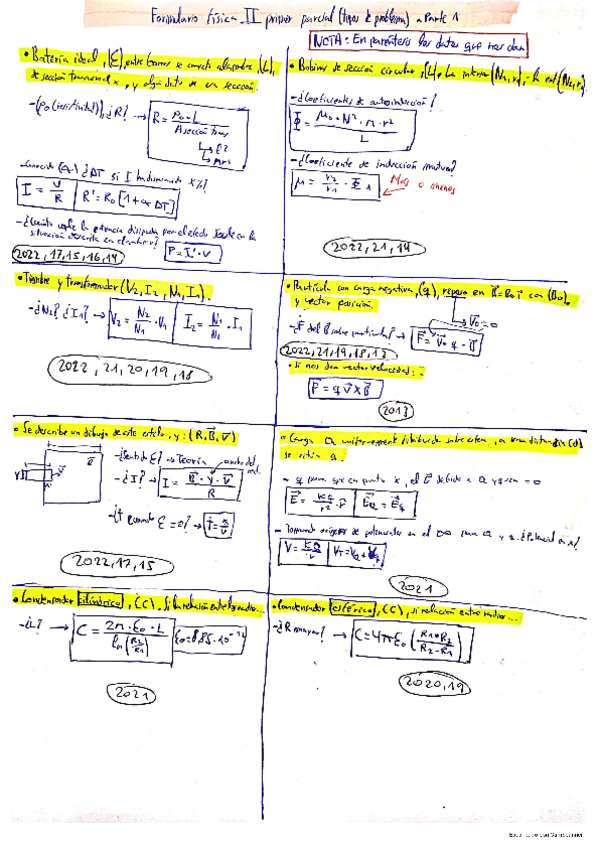 Formulario Física II primer parcial (tipos de problema) - Parte 1
NOTA: En paréntesis los datos que nos dan
• Batería ideal, (ε), entre bornes se conecta alambre, (L),
de sección transversal x, y algún dato de su sección.
- (ρ0 (resistividad)), ¿R? → R = ρ0 · L / A sección trans
- Conocido (α) ¿ΔT si I ha disminuido X%?
I = V / R   R' = R0 [1 + α ΔT]
- ¿Cuánto vale la potencia disipada por el efecto Joule en la
situación descrita en el anterior?   P = I' · V
2022, 17, 15, 16, 14
• Bobinas de sección circular, (L). La interior (N1, r1), la ext (N2, r2)
- ¿Coeficientes de autoinducción?
Φ = μ0 · N² · π · r² / L
- ¿Coeficiente de inducción mutua?
Más o menos
2022, 21, 14
• Timbre y transformador (V2, I2, N1, I1).
- ¿N2? ¿I1? → V2 = N2 / N1 · V1   I2 = N1 / N2 · I1
2022, 21, 20, 19, 18
• Partícula con carga negativa, (q), reposo en B = B0 i con (B0).
y vector posición.
V0 = 0
- ¿F del B sobre partícula? →
2022, 21, 19, 18, 12
• si nos dan vector velocidad:
F = q V x B
2013
• Se describe un dibujo de este estilo, y: (R, B, v)
- ¿Sentido ε? → Teoría
- ¿I? → I =
R
- ¿t cuando ε = 0? →
2022, 17, 15
• Carga Q uniformemente distribuida sobre esfera, a una distancia (d)
se sitúa q.
- q para que en punto x, el E debido a Q y q sea = 0
E = KQ / r² · r   EQ = Eq
- Tomando origen de potenciales en el ∞ para Q y q ¿Potencial en x?
V = KQ / r   VT = VQ + Vq
2021
• Condensador cilíndrico, (C). Si la relación entre los radios...
- ¿L? → C = 2π · ε0 · L / ln (R2 / R1)   ε0 = 8,85 · 10⁻¹²
2021
• Condensador esférico, (C), si relación entre radios...
- ¿R mayor? → C = 4π ε0 (R1 • R2 / R2 - R1)
2020, 19